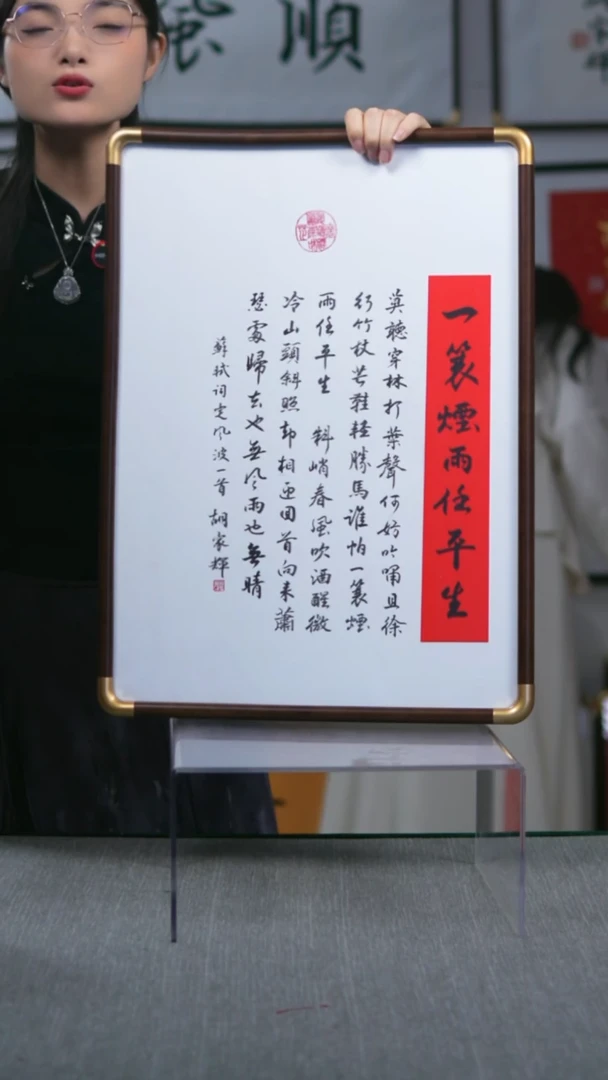 順風
一蓑煙雨任平生
莫聽穿林打葉聲何妨吟嘯且徐
行竹杖芒鞋輕勝馬誰怕一蓑煙
雨任平生 料峭春風吹酒醒微
冷山頭斜照却相迎回首向來蕭
瑟處歸去也無風雨也無晴
蘇軾詞定風波一首 胡家輝